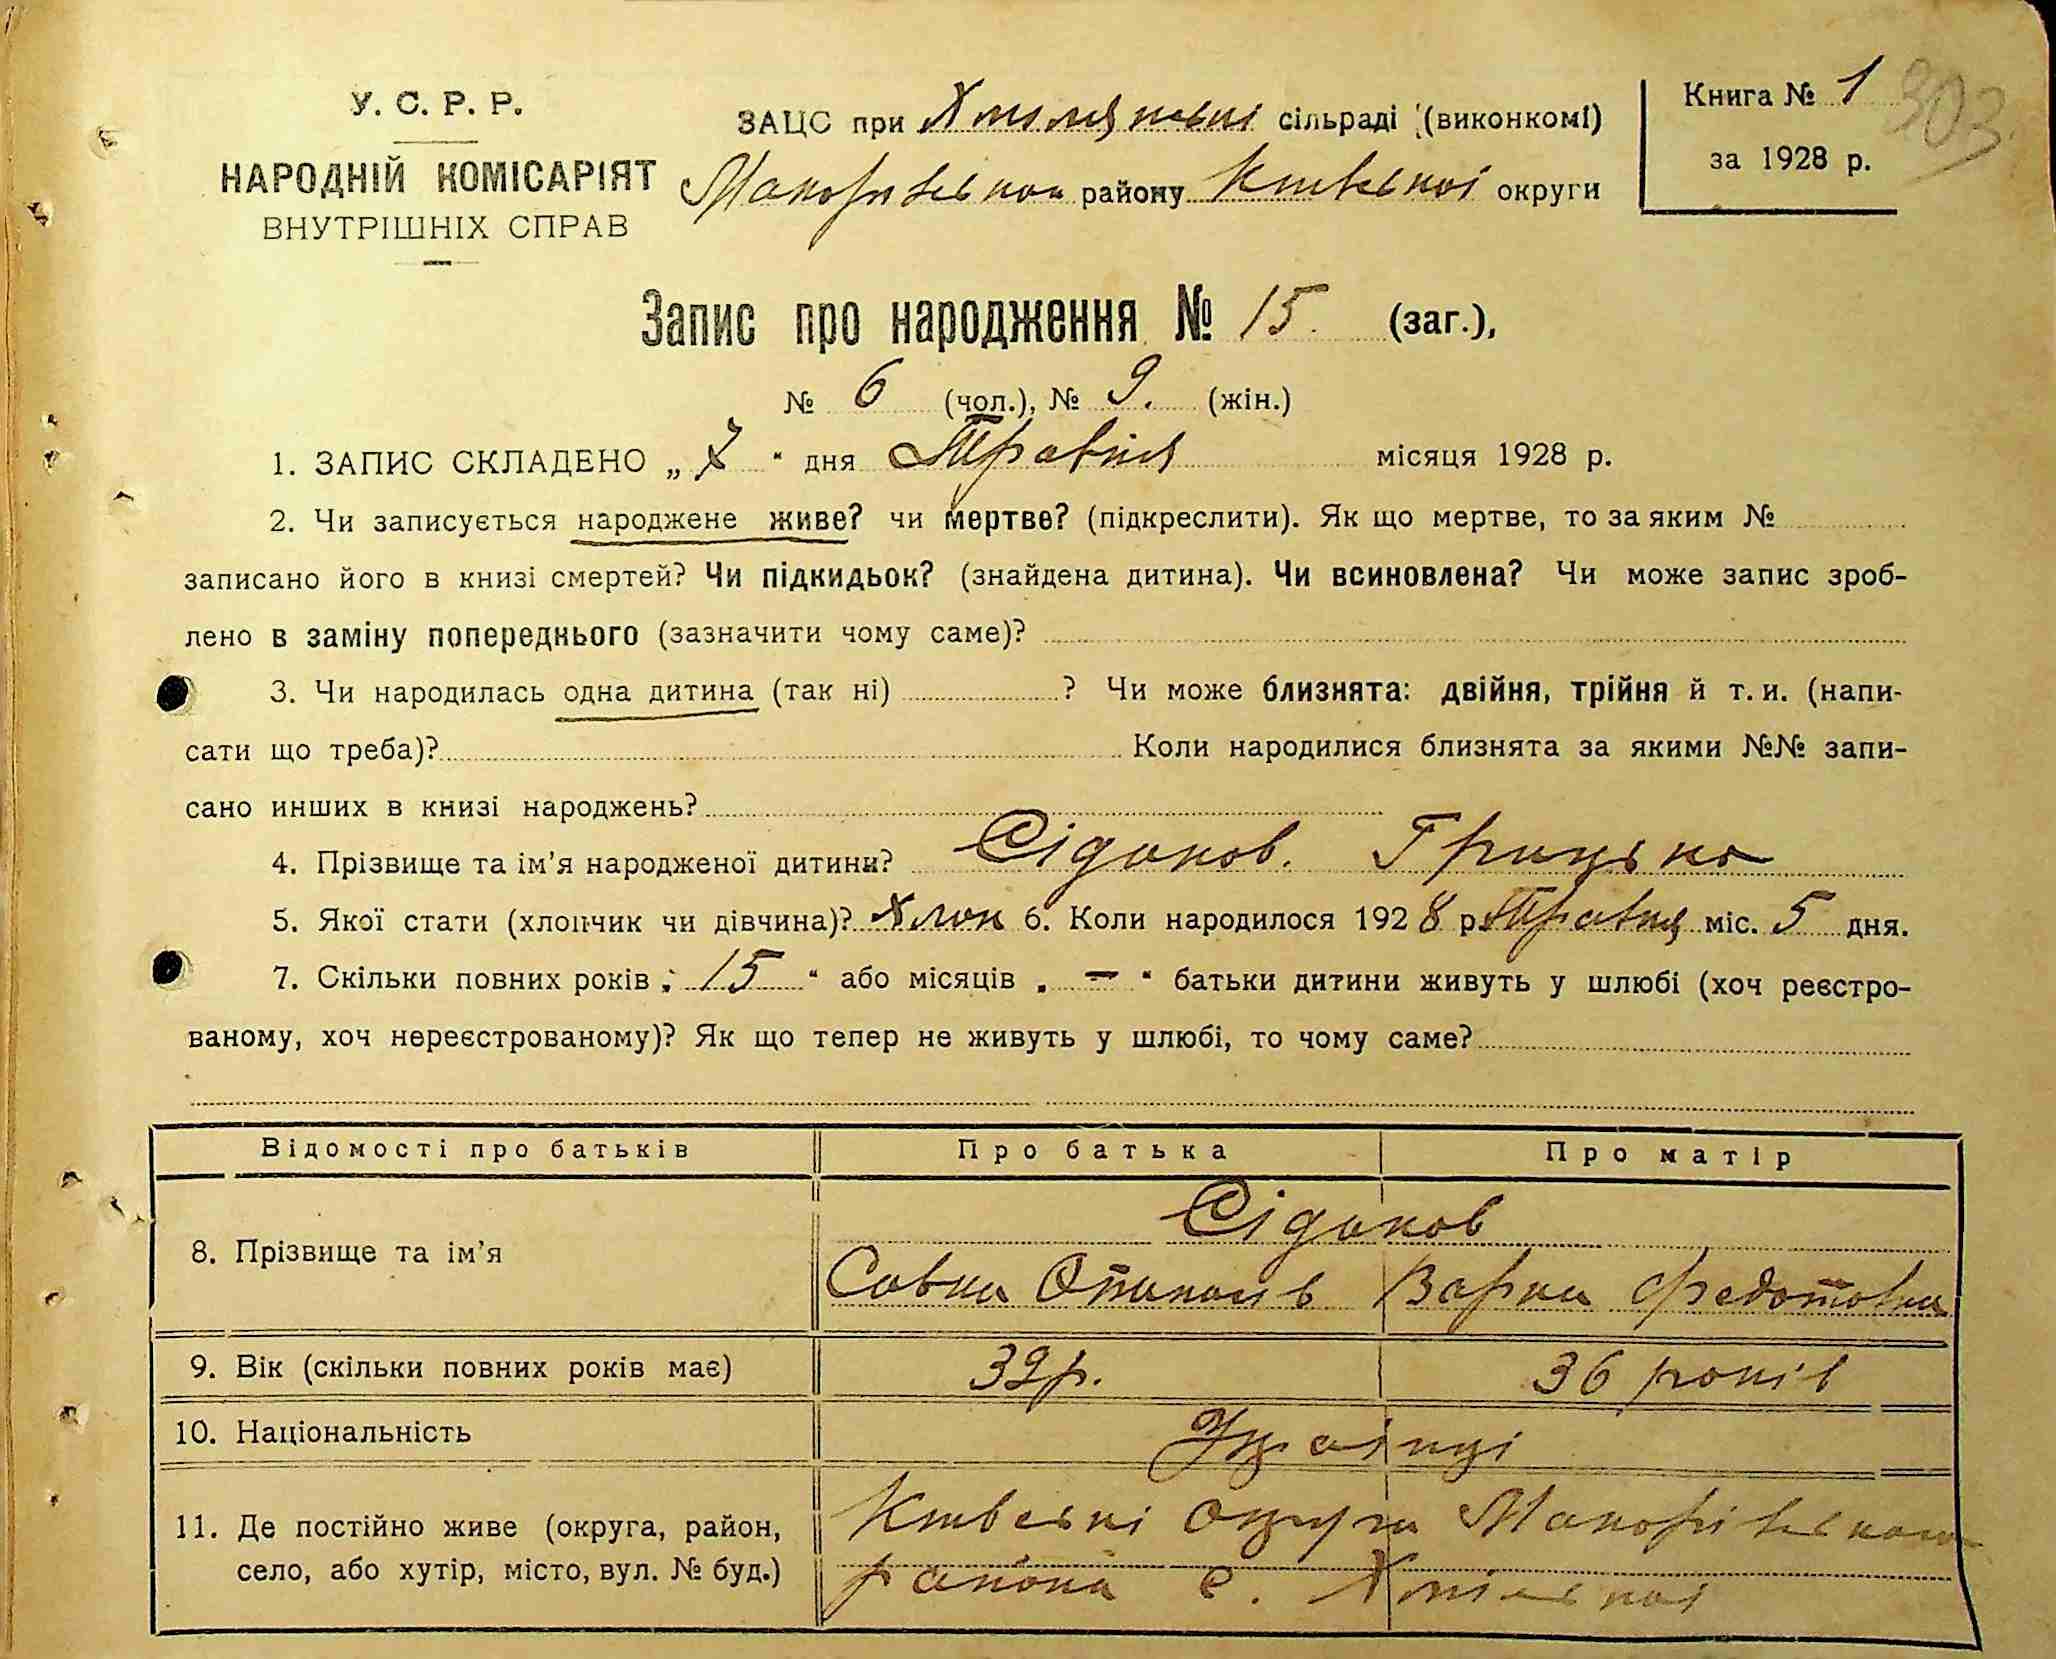 У. С. Р. Р.
НАРОДНІЙ КОМІСАРІЯТ
ВНУТРІШНІХ СПРАВ
ЗАЦС при сільраді (виконкомі)
району округи
Книга № 1
за 1928 р.
303
Запис про народження № 15. (заг.),
№ 6 (чол.), № 9. (жін.)
1. ЗАПИС СКЛАДЕНО „ 7 “ дня Травня місяця 1928 р.
2. Чи записується народжене живе? чи мертве? (підкреслити). Як що мертве, то за яким №
записано його в книзі смертей? Чи підкидьок? (знайдена дитина). Чи всиновлена? Чи може запис зроб-
лено в заміну попереднього (зазначити чому саме)?
3. Чи народилась одна дитина (так ні) ? Чи може близнята: двійня, трійня й т. и. (напи-
сати що треба)? Коли народилися близнята за якими №№ запи-
сано инших в книзі народжень?
4. Прізвище та ім’я народженої дитини? Сідаков. Грицько
5. Якої стати (хлопчик чи дівчина)? Хлоп 6. Коли народилося 1928 р. Травня міс. 5 дня.
7. Скільки повних років „ 15 “ або місяців „ — “ батьки дитини живуть у шлюбі (хоч реєстро-
ваному, хоч нереєстрованому)? Як що тепер не живуть у шлюбі, то чому саме?
Відомості про батьків Про батька Про матір
8. Прізвище та ім’я Сідаков
Савка Варка Федотовна
9. Вік (скільки повних років має) 39р. 36 років
10. Національність Українці
11. Де постійно живе (округа, район, округи
село, або хутір, місто, вул. № буд.) района с.